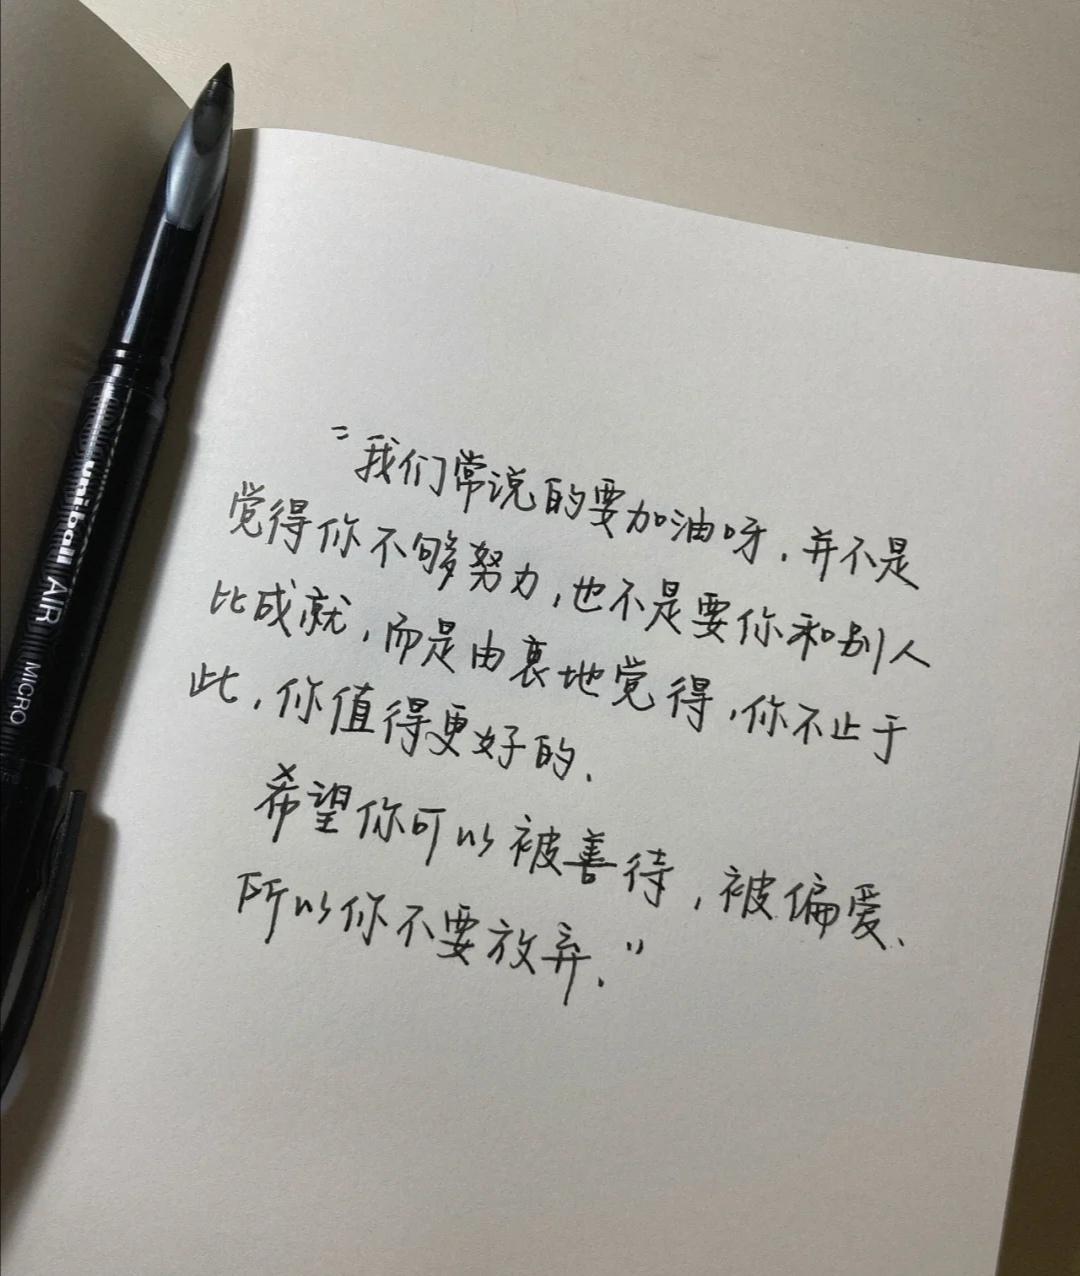 "我们常说的要加油呀,并不是
觉得你不够努力,也不是要你和别人
比成就,而是由衷地觉得,你不止于
此,你值得更好的、
希望你可以被善待,被偏爱、
所以你不要放弃、"
uniball AIR MICRO